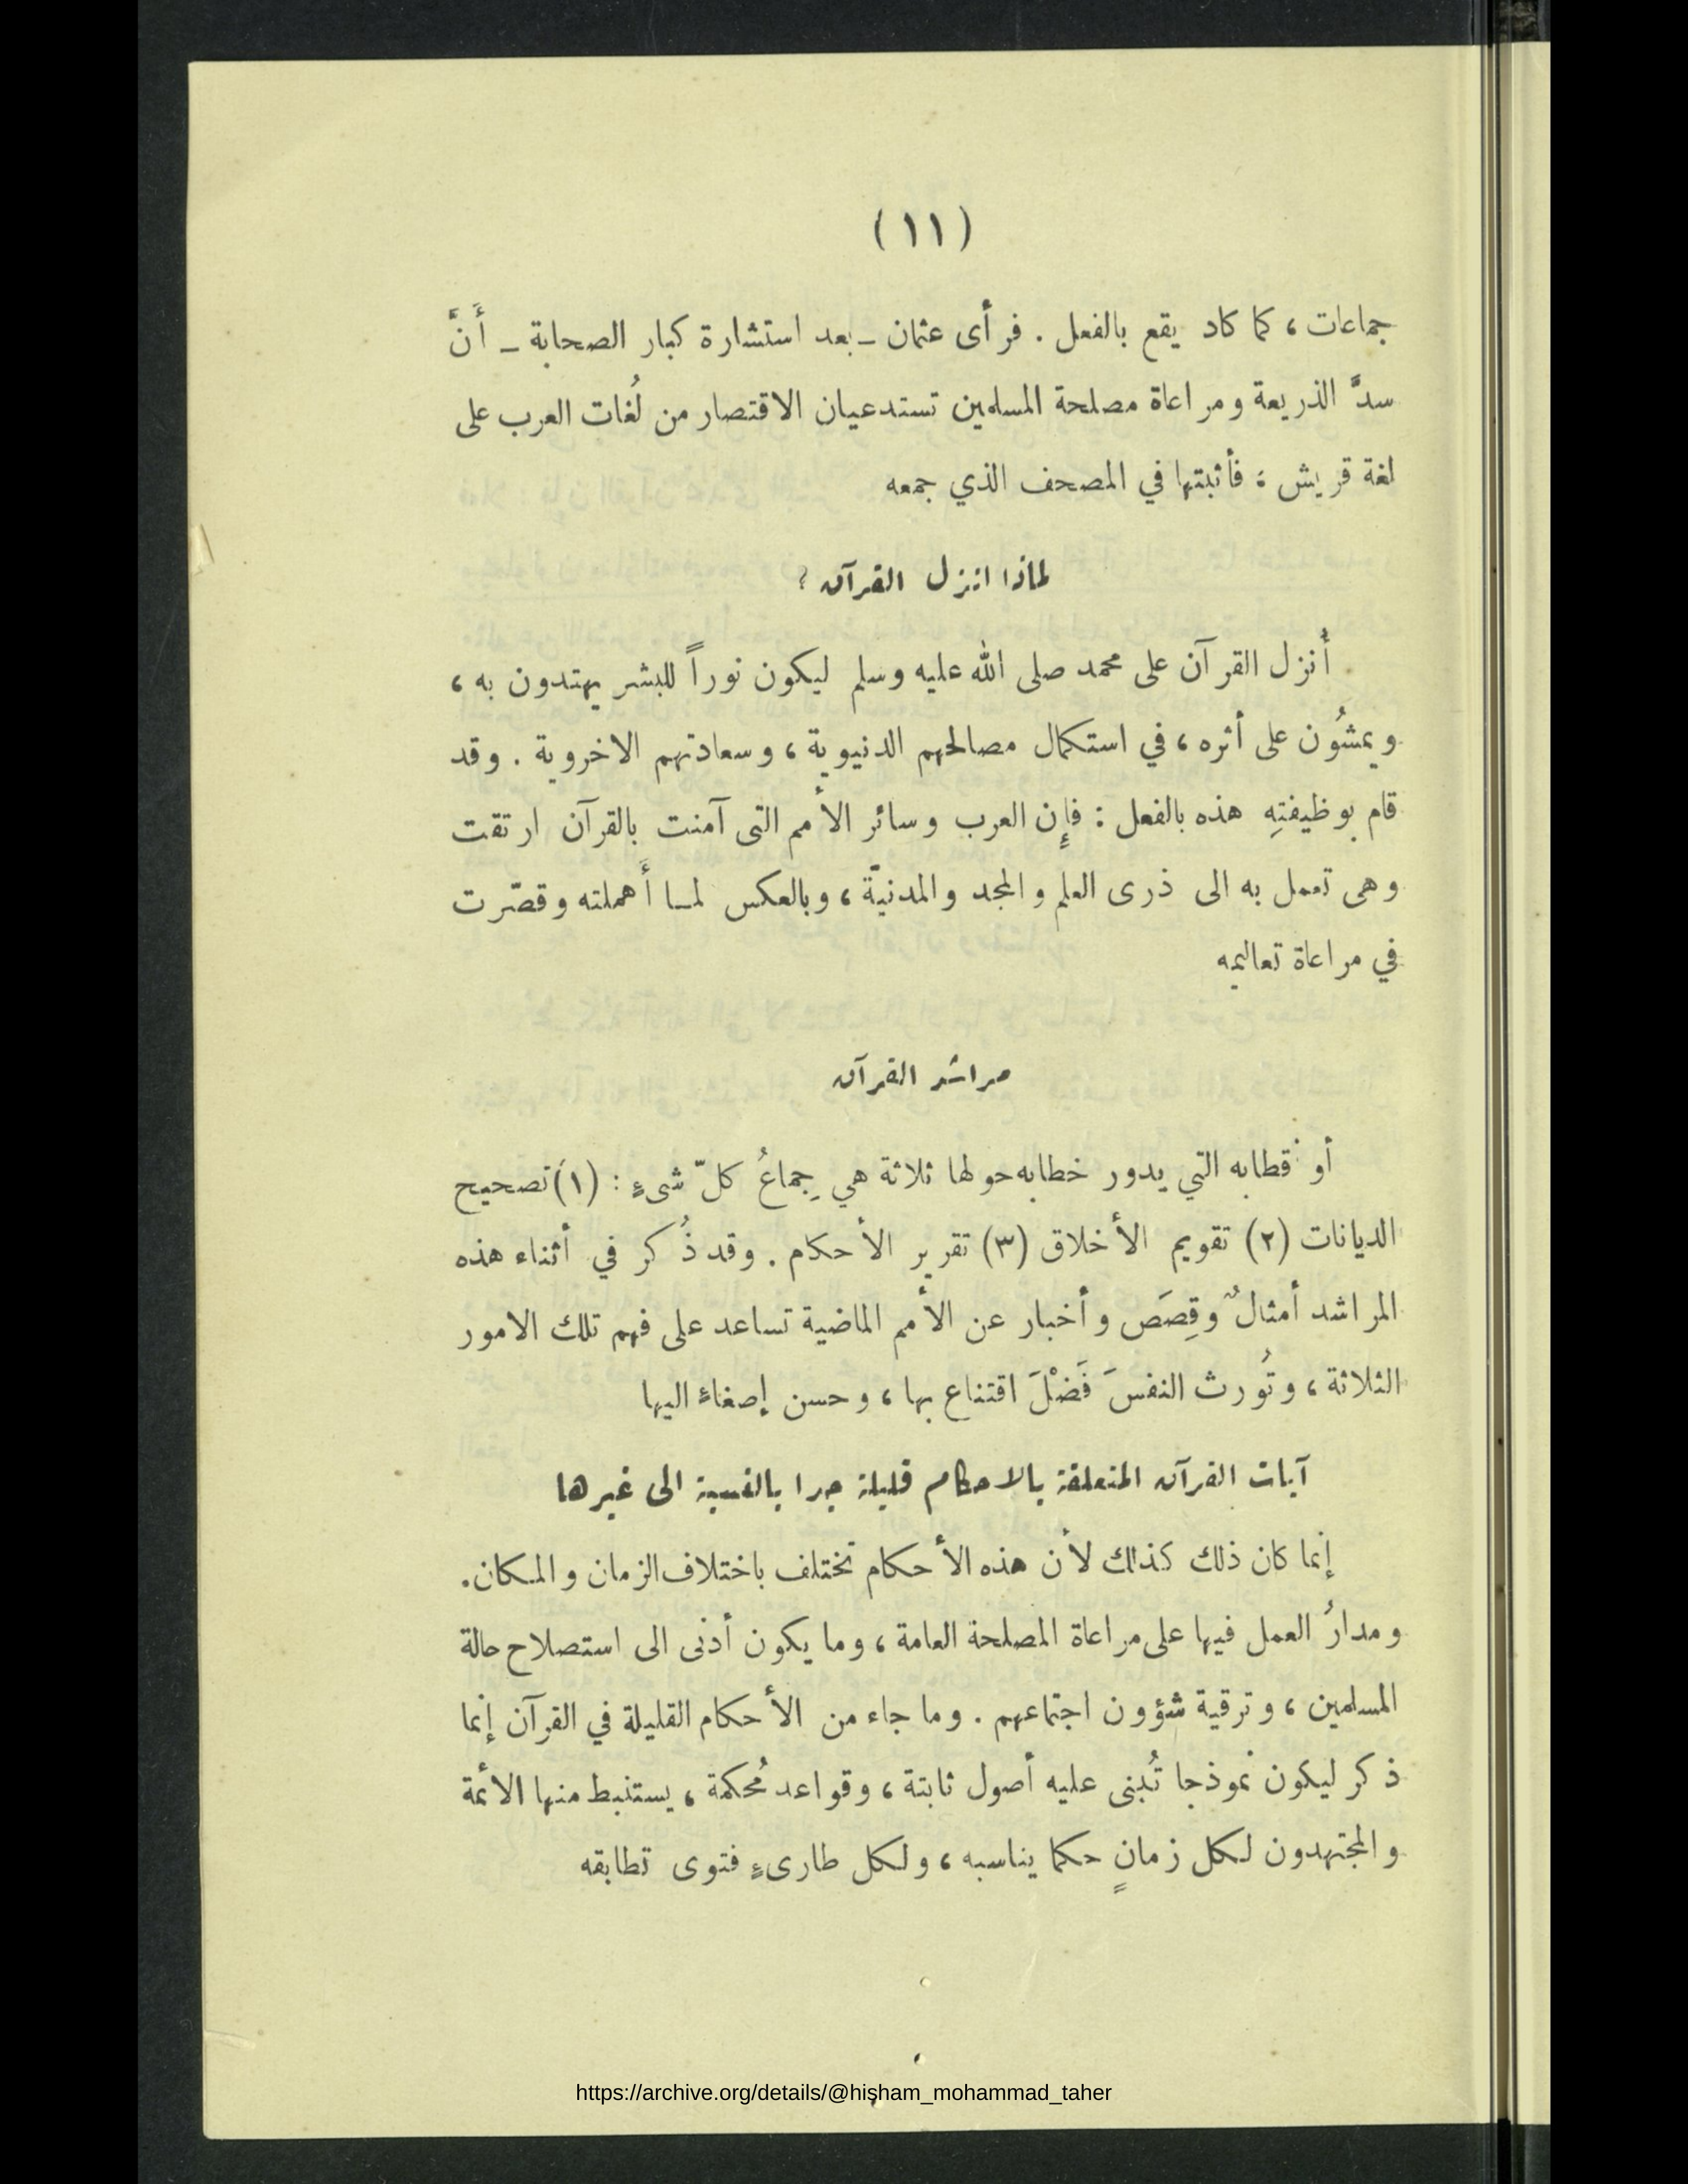 (١١)
جماعات، كما كاد يقع بالفعل. فرأى عثمان ـ بعد استشارة كبار الصحابة ـ أَنَّ
سدَّ الذريعة ومراعاة مصلحة المسلمين تستدعيان الاقتصار من لُغات العرب على
لغة قريش: فأثبتها في المصحف الذي جمعه
لماذا انزل القرآن؟
أُنزل القرآن على محمد صلى الله عليه وسلم ليكون نوراً للبشر يهتدون به،
ويمشُون على أثره، في استكمال مصالحهم الدنيوية، وسعادتهم الاخروية. وقد
قام بوظيفتِهِ هذه بالفعل: فإن العرب وسائر الأمم التى آمنت بالقرآن ارتقت
وهى تعمل به الى ذرى العلم والمجد والمدنيّة، وبالعكس لمـا أَهملته وقصّرت
في مراعاة تعاليمه
مراشد القرآن
أو قطابه التي يدور خطابه حولها ثلاثة هي جِماعُ كلّ شىءٍ: (١) تصحيح
الديانات (٢) تقويم الأخلاق (٣) تقرير الأحكام. وقد ذُكر في أثناء هذه
المراشد أمثالٌ وقِصَص وأخبار عن الأمم الماضية تساعد على فهم تلك الامور
الثلاثة، وتُورث النفسَ فَضْلَ اقتناع بها، وحسن إصغاءٍ اليها
آيات القرآن المتعلقة بالاحكام قليلة جدا بالنسبة الى غيرها
إنما كان ذلك كذلك لأن هذه الأحكام تختلف باختلاف الزمان والمكان.
ومدارُ العمل فيها على مراعاة المصلحة العامة، وما يكون أدنى الى استصلاح حالة
المسلمين، وترقية شؤون اجتماعهم. وما جاء من الأحكام القليلة في القرآن إنما
ذكر ليكون نموذجا تُبنى عليه أصول ثابتة، وقواعد مُحكمة، يستنبط منها الائمة
والمجتهدون لكل زمانٍ حكما يناسبه، ولكل طارىءٍ فتوى تطابقه
https://archive.org/details/@hisham_mohammad_taher